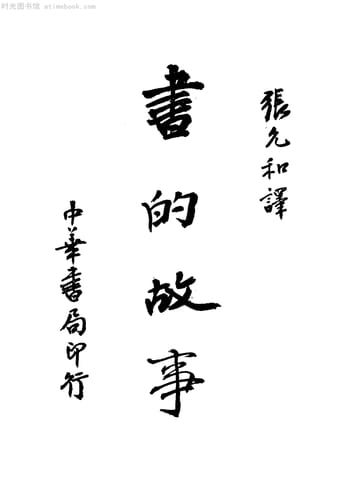 时光图书馆 atimebook.com
張允和譯
書的故事
中華書局印行